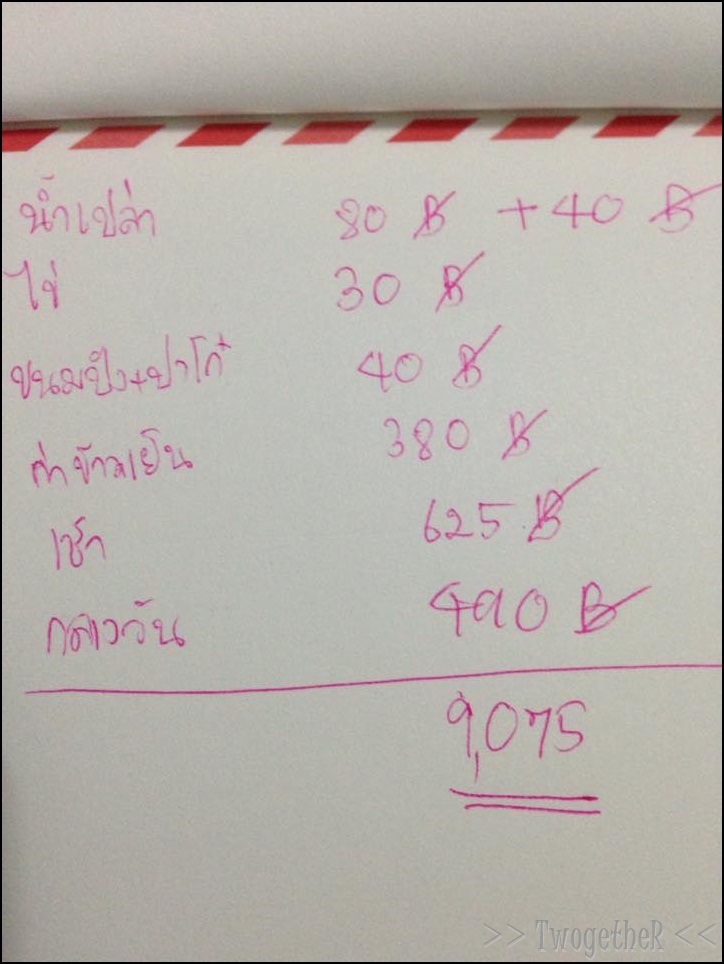 น้ำเปล่า 80 ฿ + 40 ฿
ไข่ 30 ฿
ขนมปัง+ปาท่องโก๋ 40 ฿
ค่าข้าวเย็น 380 ฿
เช้า 625 ฿
กลางวัน 490 ฿
9,075
>> TwogetheR <<